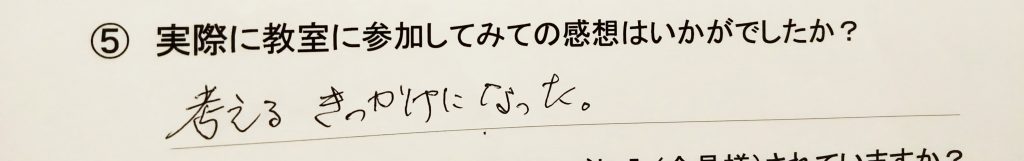 ⑤ 実際に教室に参加してみての感想はいかがでしたか？
考える きっかけになった。
されていますか？